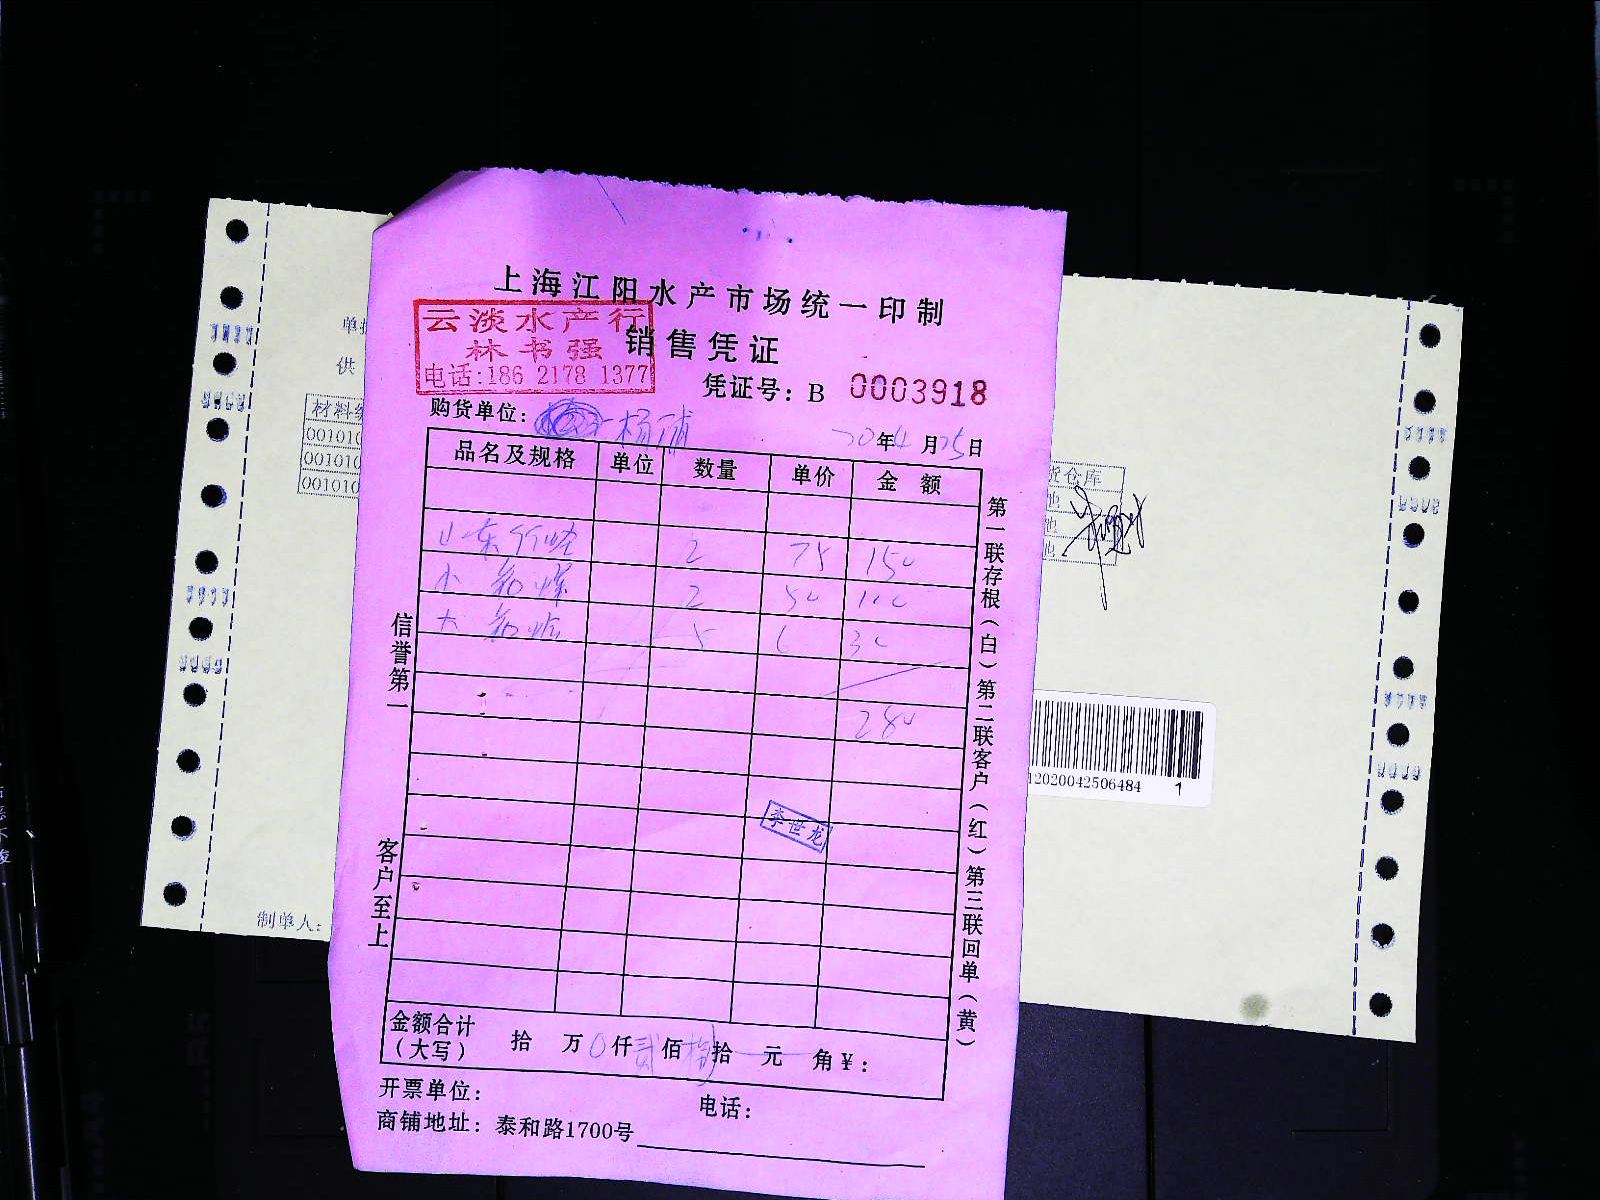 上海江阳水产市场统一印制
云淡水产行
林书强
电话:186 2178 1377
销售凭证
凭证号: B 0003918
购货单位: 杨
20年4月25日
品名及规格 单位 数量 单价 金额
山东 2 75 150
小 2 50 100
大 5 6 30
280
李世龙
金额合计
(大写) 拾 万0仟贰佰捌拾 元 角¥:
开票单位: 电话:
商铺地址: 泰和路1700号
信誉第一
客户至上
第一联存根(白)第二联客户(红)第三联回单(黄)
供
材料
00101
00101
00101
货仓库
制单人:
12020042506484 1